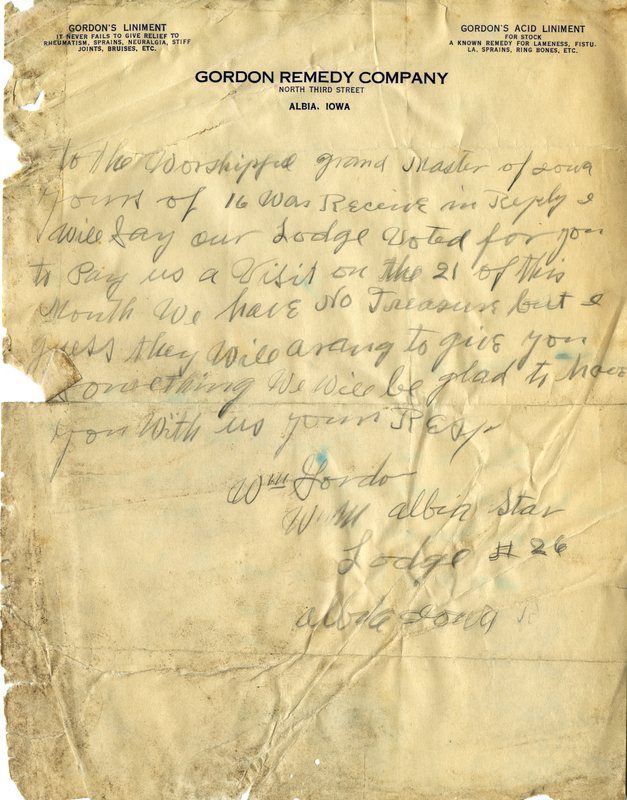 GORDON'S LINIMENT
IT NEVER FAILS TO GIVE RELIEF TO
RHEUMATISM, SPRAINS, NEURALGIA, STIFF
JOINTS, BRUISES, ETC.
GORDON'S ACID LINIMENT
FOR STOCK
A KNOWN REMEDY FOR LAMENESS, FISTU-
LA, SPRAINS, RING BONES, ETC.
GORDON REMEDY COMPANY
NORTH THIRD STREET
ALBIA, IOWA
To the Worshipful grand Master of iowa
yours of 16 Was Receive in Reply I
Will Say our Lodge Voted for you
to Pay us a Visit on the 21 of this
Month We have No Treasure but I
guess they Will arang to give you
Something We Will be glad to have
you With us yours Resp
Wm Gordo
W M albia Star
Lodge # 26
albia iowa